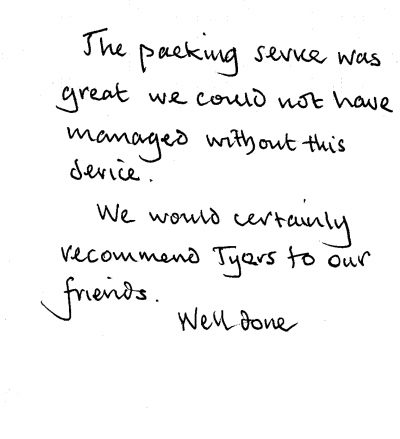 The packing service was
great we could not have
managed without this
service.
We would certainly
recommend Tyers to our
friends.
Well done